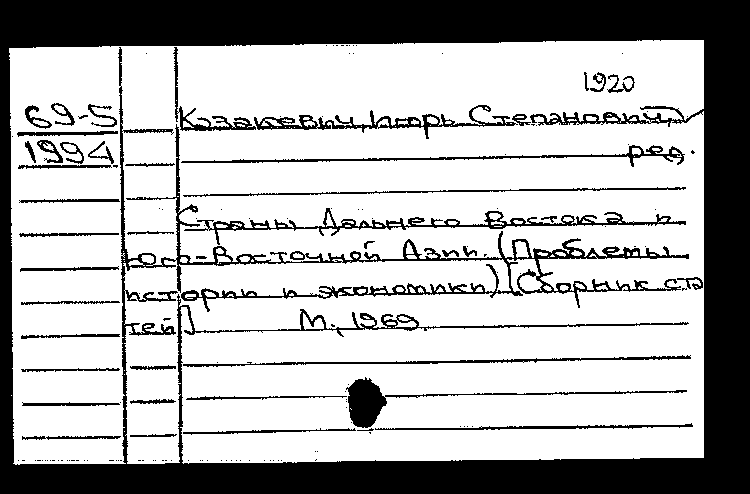 1920
69-5 Казакевич, Игорь Степанович,
1994 ред.
Страны Дальнего Востока и
Юго-Восточной Азии. (Проблемы
истории и экономики) [Сборник ста
тей] М., 1969.